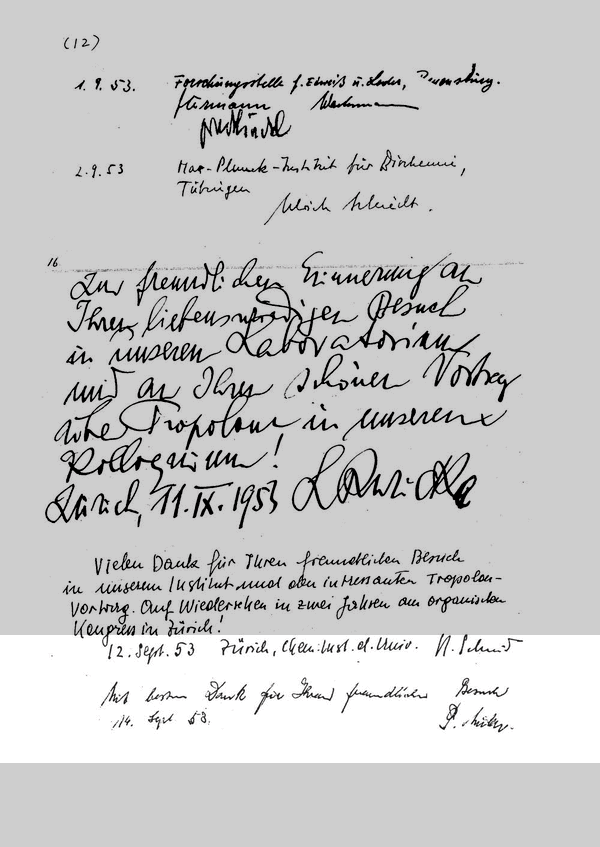 (12)
1. 9. 53. Forschungsstelle f. Eiweiß u. Leder, Regensburg.
2. 9. 53 Max-Planck-Institut für Biochemie,
Tübingen
Ulrich Schmidt.
16
Zur freundlichen Erinnerung an
Ihren liebenswürdigen Besuch
in unseren Laboratorium
und an Ihren schönen Vortrag
über Tropolone in unserem
Kolloquium!
Zürich, 11. IX. 1953 L Ruzicka
Vielen Dank für Ihren freundlichen Besuch
in unserem Institut und den interessanten Tropolon-
Vortrag. Auf Wiedersehen in zwei Jahren am organischen
Kongress in Zürich!
12. Sept. 53 Zürich, Chem. Inst. d. Univ. H. Schmid
Mit besten Dank für Ihren freundlichen Besuch
14. Sept 53. P.